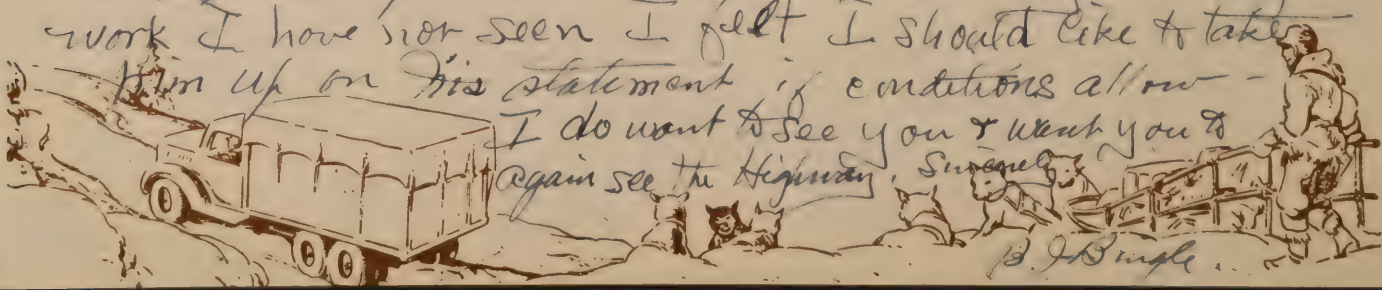 work I have not seen I felt I should like to take
him up on his statement if conditions allow -
I do want to see you & want you to
again see the Highway. Sincerely
B. J. Bingle.